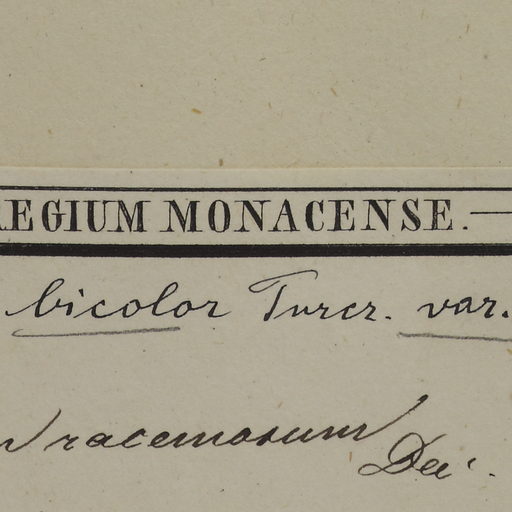 REGIUM MONACENSE.—
bicolor Turcz. var.
racemosum